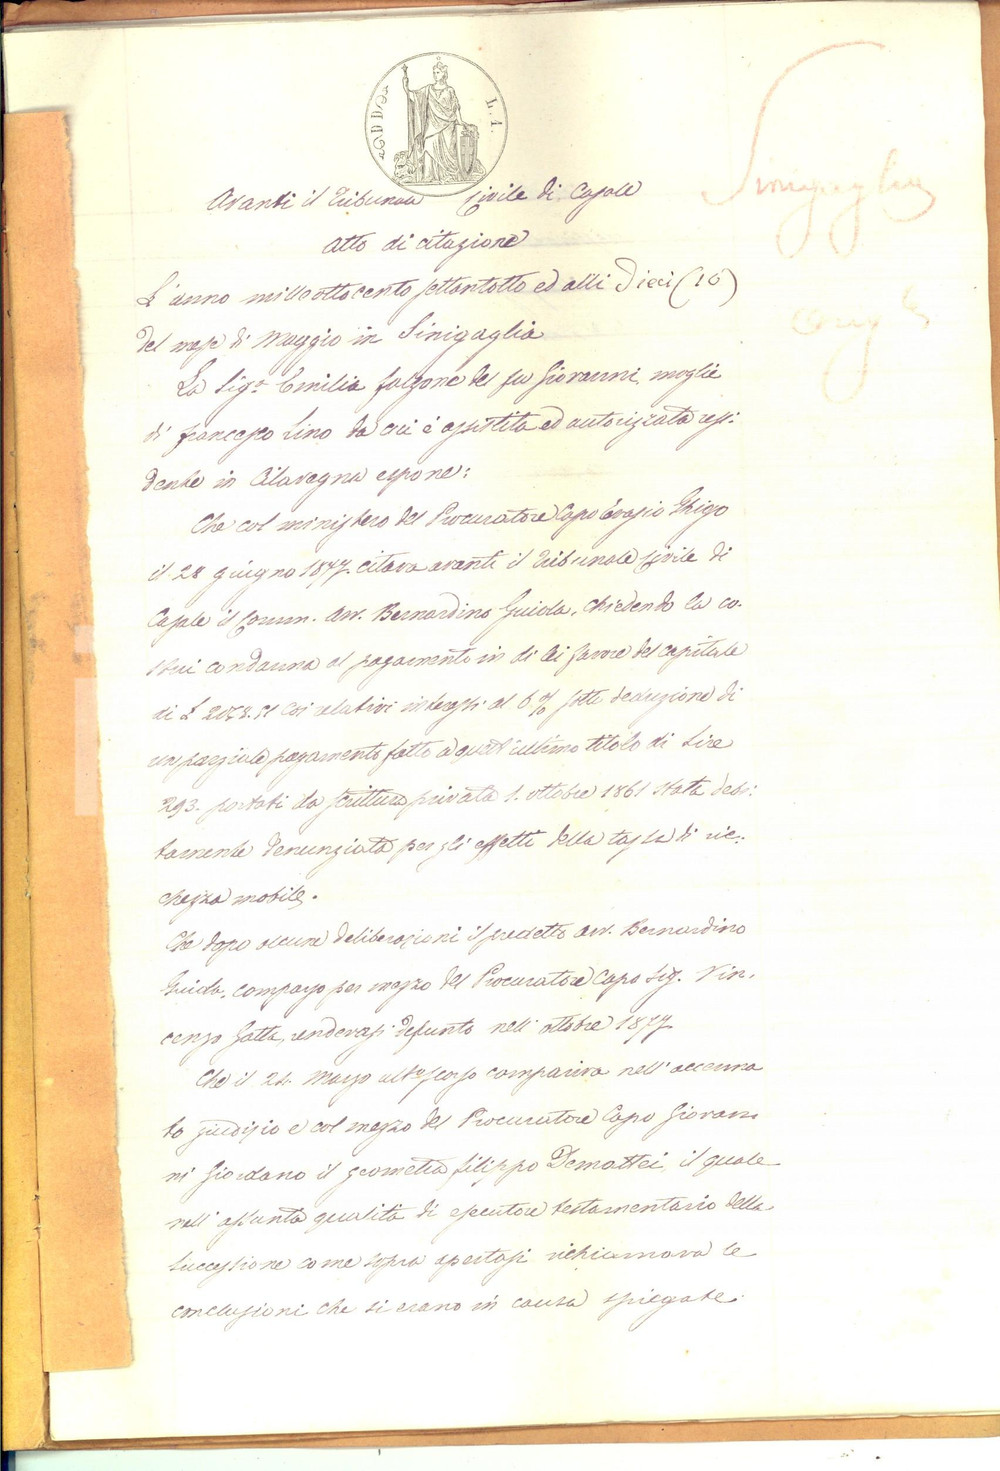 L. 1.
Sinigaglia
Avanti il Tribunale Civile di Casale
Atto di citazione
L'anno mille ottocento settantotto ed alli Dieci (10)
del mese di Maggio in Sinigaglia
La Sig.a Emilia Falzone del fu Giovanni, moglie
di Francesco Lino da cui è assistita ed autorizzata resi-
dente in Cilavegna espone:
Che col ministero del Procuratore Capo Evasio Ghigo
il 28 giugno 1877. citava avanti il Tribunale Civile di
Casale il Comm. Avv. Bernardino Guiola, chiedendo la co-
stui condanna al pagamento in di lei favore del capitale
di £ coi relativi interessi al 6 % sotto deduzione di
un parziale pagamento fatto a quest'ultimo titolo di Lire
293. portati da scrittura privata 1. ottobre 1861 stata debi-
tamente denunziata per gli effetti della tassa di ric-
chezza mobile.
Che dopo alcune deliberazioni il predetto Avv. Bernardino
Guiola, comparso per mezzo del Procuratore Capo Sig. Vin-
cenzo Gatta, rendevasi defunto nell'ottobre 1877
Che il 21. Marzo ult.o scorso compariva nell'accenna
to giudizio e col mezzo del Procuratore Capo Giovan
ni Giordano il geometra Filippo Demattei, il quale
nell'assunta qualità di esecutore testamentario della
successione come sopra apertasi richiamava le
conclusioni che si erano in causa spiegate.